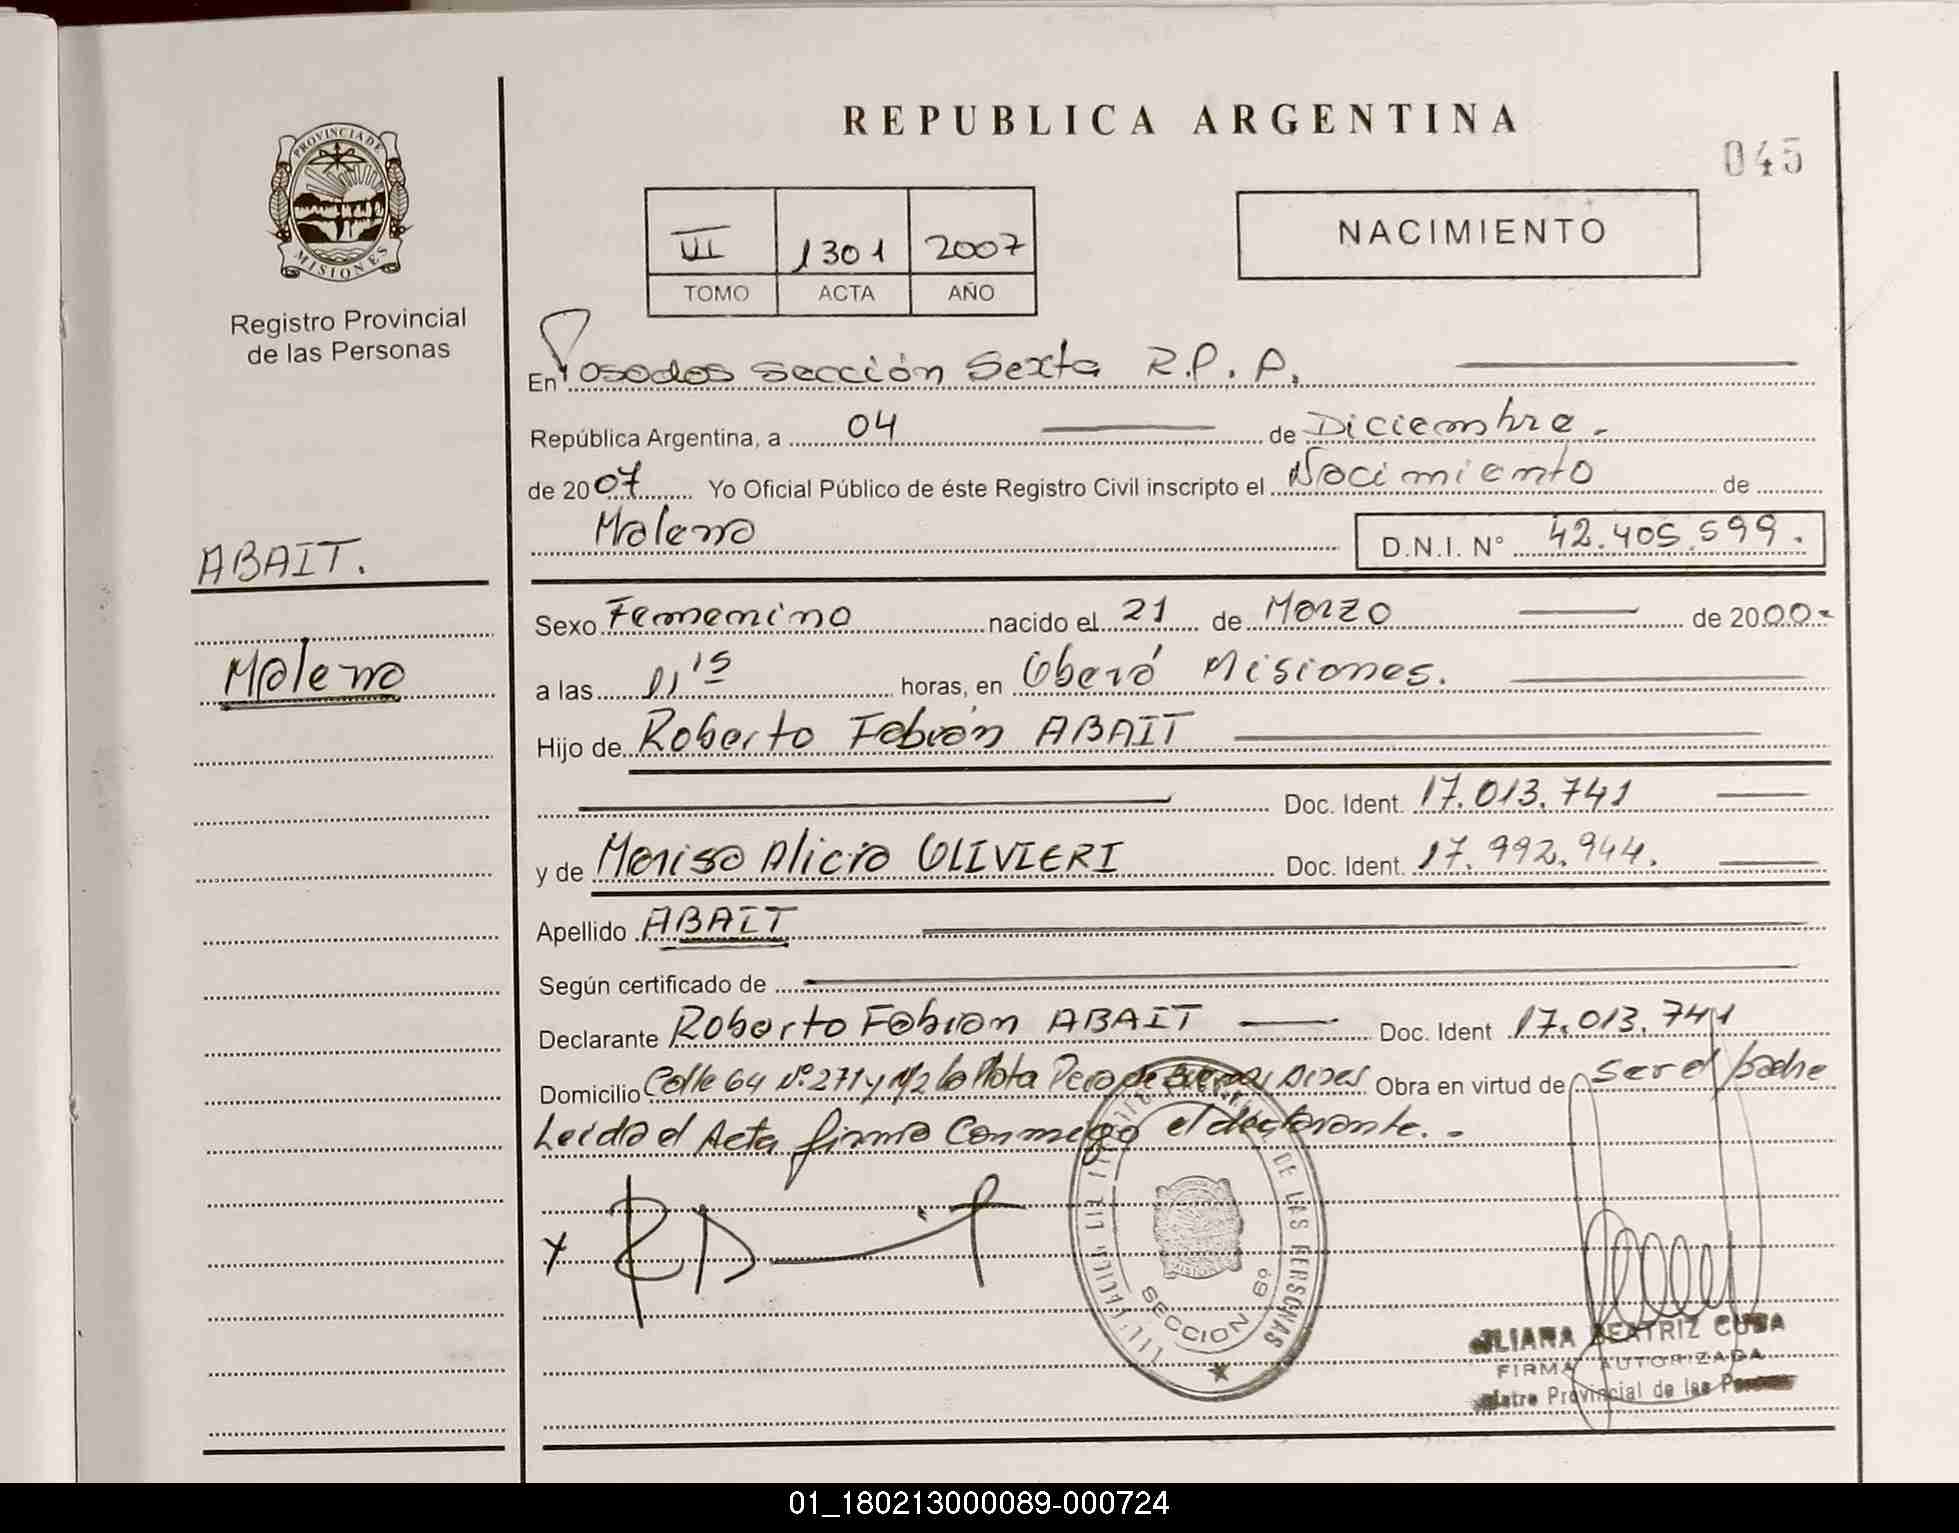 REPUBLICA ARGENTINA
045
PROVINCIA DE
MISIONES
Registro Provincial
de las Personas
VI 1301 2007
TOMO ACTA AÑO
NACIMIENTO
En Posadas Sección Sexta R.P.P.
República Argentina, a 04 de Diciembre.
de 2007 Yo Oficial Público de éste Registro Civil inscripto el Nacimiento de
Malena D.N.I. N° 42.405.599.
ABAIT.
Malena
Sexo Femenino nacido el 21 de Marzo de 2000-
a las 11 15 horas, en Oberá Misiones.
Hijo de Roberto Fabián ABAIT
Doc. Ident. 17.013.741
y de Marisa Alicia OLIVIERI Doc. Ident. 17.992.944.
Apellido ABAIT
Según certificado de
Declarante Roberto Fabian ABAIT Doc. Ident 17.013.741
Domicilio Calle 64 N° 271 y 1/2 La Plata Pcia de Buenos Aires Obra en virtud de ser el padre
Leida el Acta firma conmigo el declarante.-
DE LAS PERSONAS
SECCION 6º
BEATRIZ CUBA
FIRMA AUTORIZADA
Provincial de las Personas
01_180213000089-000724